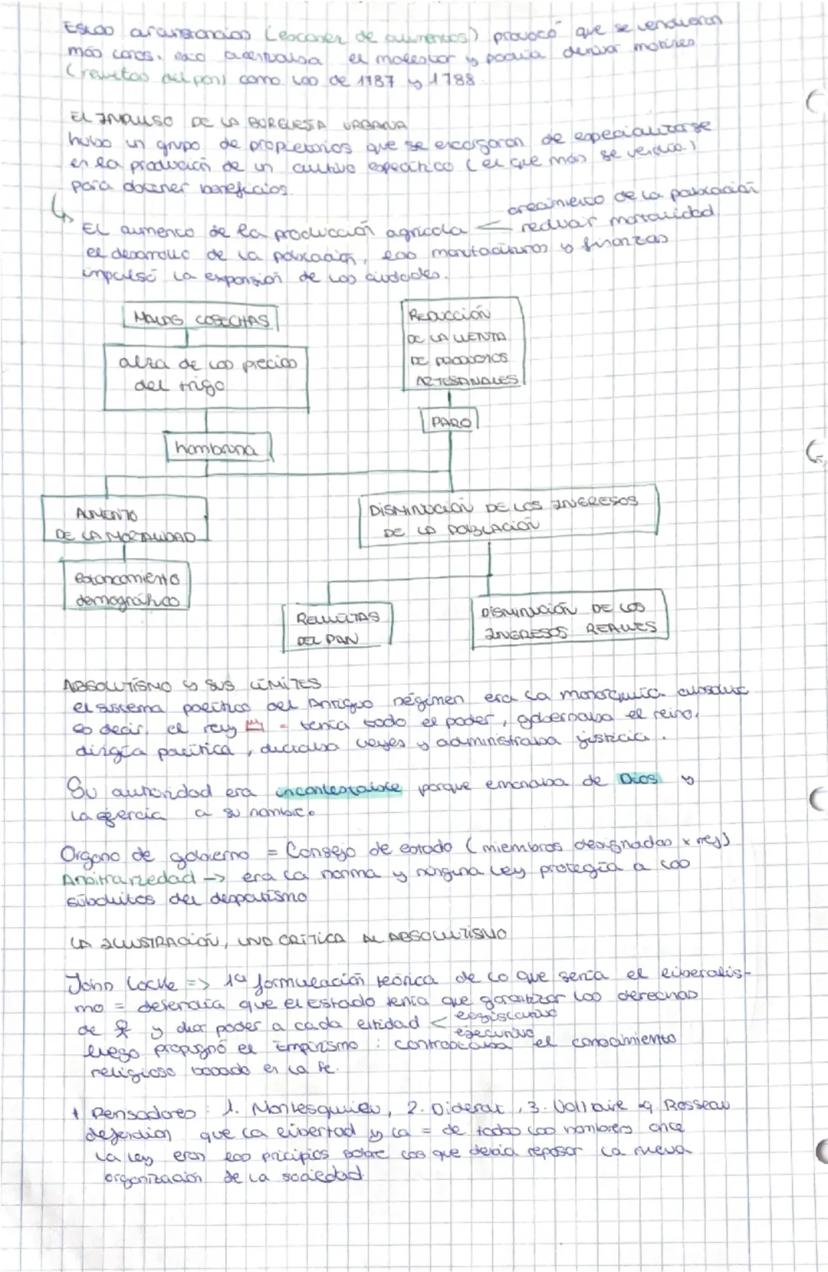 Estas circunstancias (escasez de alimentos) provocó que se vendieran
más caros, eso acentuaba el malestar y podía derivar motines
(revueltas del pan) como los de 1787 y 1788
EL IMPULSO DE LA BURGUESÍA URBANA
hubo un grupo de propietarios que se encargaron de especializarse
en la producción de un cultivo específico (el que más se vendía)
para obtener beneficios.
↳ El aumento de la producción agrícola < crecimiento de la población
reducir mortalidad
el desarrollo de la población, las manufacturas y finanzas
impulsó la expansión de las ciudades.
MALAS COSECHAS
REDUCCIÓN
DE LA VENTA
DE PRODUCTOS
ARTESANALES
alza de los precios
del trigo
PARO
hambruna
AUMENTO
DE LA MORTALIDAD
DISMINUCIÓN DE LOS INGRESOS
DE LA POBLACIÓN
estancamiento
demográfico
REVUELTAS
DEL PAN
DISMINUCIÓN DE LOS
INGRESOS REALES
ABSOLUTISMO Y SUS LÍMITES
el sistema político del Antiguo régimen era la monarquía absoluta
es decir, el rey - tenía todo el poder, gobernaba el reino,
dirigía política, decidía leyes y administraba justicia.
Su autoridad era incontestable porque emanaba de Dios y
la ejercía a su nombre.
Organo de gobierno = Consejo de estado (miembros designados x rey)
Arbitrariedad -> era la norma y ninguna ley protegía a los
súbditos del despotismo
LA ILUSTRACIÓN, UNA CRÍTICA AL ABSOLUTISMO
John Locke => 1ª formulación teórica de lo que sería el liberalis-
mo = defendía que el estado tenía que garantizar los derechos
de y dar poder a cada entidad < legislativo
ejecutivo
luego propugnó el Empirismo : contrastaba el conocimiento
religioso basado en la fe.
+ Pensadores : 1. Montesquieu, 2. Diderot, 3. Voltaire 4 Rosseau
defendían que la libertad y la = de todos los hombres ante
la ley eran los pricipios sobre los que debía reposar la nueva
organización de la sociedad